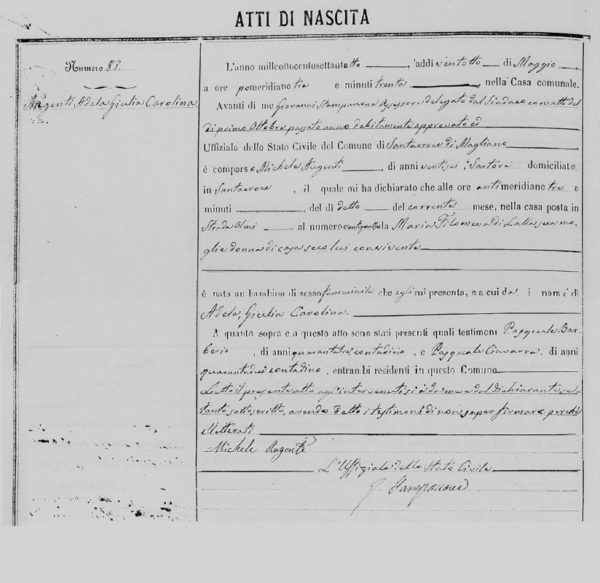 ATTI DI NASCITA
Numero 88.
Augenti, Adela Giulia Carolina
L'anno millottocentosettantotto, addì ventotto di Maggio,
a ore pomeridiane tre e minuti trenta, nella Casa comunale.
Avanti di me Giovanni Stamponone Assessore delegato dal Sindaco con atto del
di primo Ottobre passato anno debitamente approvato ed
Uffiziale dello Stato Civile del Comune di Santacroce di Magliano
è comparso Michele Augenti, di anni ventisei, Sartore domiciliato
in Santacroce, il quale mi ha dichiarato che alle ore antimeridiane tre e
minuti, del dì detto del corrente mese, nella casa posta in
Strada Olmi al numero da Maria Filomena di Lalla sua mo-
glie donna di casa seco lui convivente
è nato un bambino di sesso femminile che egli mi presenta, e a cui dà i nomi di
Adela, Giulia Carolina.
A quanto sopra e a questo atto sono stati presenti quali testimoni Pasquale Bar-
berio, di anni quarantatre, contadino, e Pasquale Ciavarra, di anni
quarantadue contadino, entrambi residenti in questo Comune
Letto il presente atto agl'intervenuti si è da me e dal dichiarante sol-
tanto, sottoscritto, avendo detto i testimoni di non saper firmare perchè
illetterati
Michele Augente
L'Uffiziale dello Stato Civile
G. Stamponone